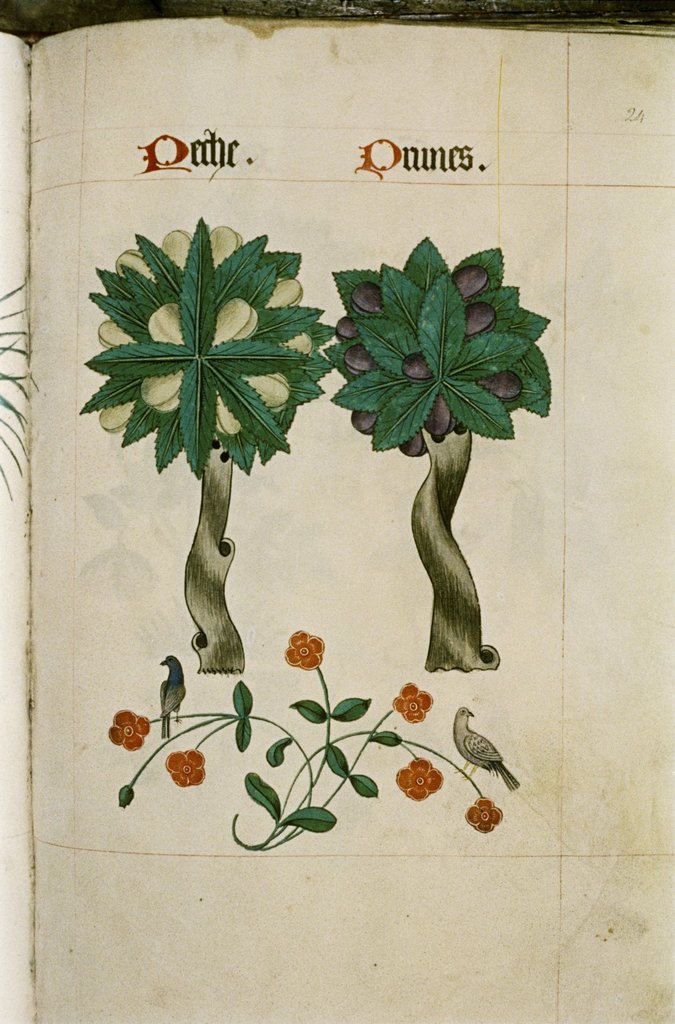 24
Peche. Prunes.